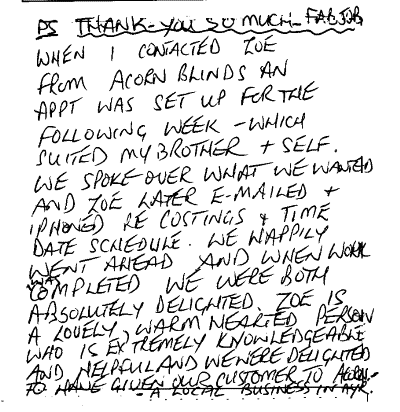 PS THANK-YOU SO MUCH - FAB JOB
WHEN I CONTACTED ZOE
FROM ACORN BLINDS AN
APPT WAS SET UP FOR THE
FOLLOWING WEEK - WHICH
SUITED MY BROTHER + SELF.
WE SPOKE OVER WHAT WE WANTED
AND ZOE LATER E-MAILED +
PHONED RE COSTINGS & TIME
DATE SCHEDULE. WE HAPPILY
WENT AHEAD AND WHEN WORK
WAS
COMPLETED WE WERE BOTH
ABSOLUTELY DELIGHTED. ZOE IS
A LOVELY, WARM HEARTED PERSON
WHO IS EXTREMELY KNOWLEDGEABLE
AND HELPFUL AND WE WERE DELIGHTED
TO HAVE GIVEN OUR CUSTOMER TO ACORN.
- A LOCAL BUSINESS IN AYR.